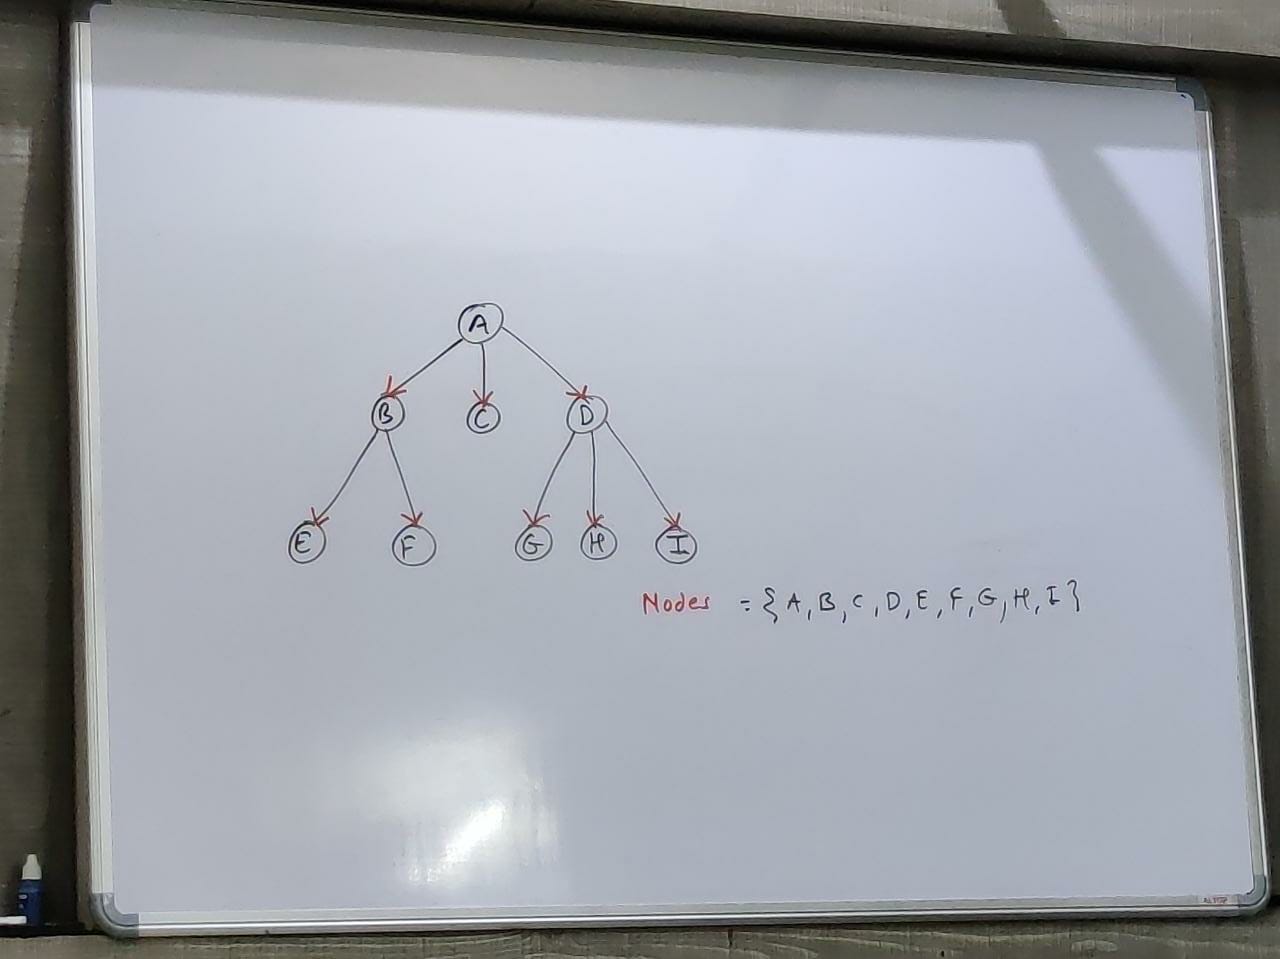 A
B C D
E F G H I
Nodes = {A, B, C, D, E, F, G, H, I}